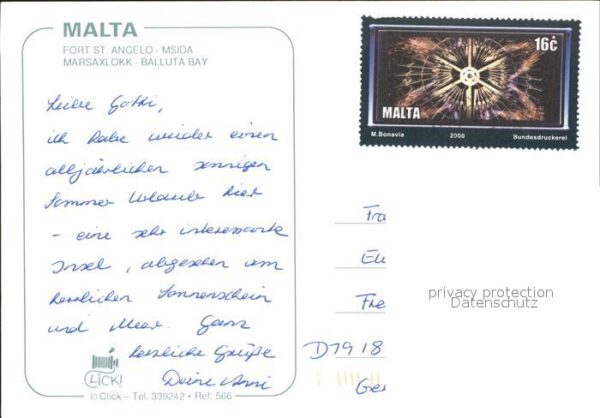 MALTA
FORT ST. ANGELO - MSIDA
MARSAXLOKK - BALLUTA BAY
Liebe Gotti,
ich habe wieder einen
alljährlichen sonnigen
Sommer Urlaub hier
- eine sehr interessante
Insel, abgesehen vom
herrlichen Sonnenschein
und Meer. Ganz
herzliche Grüße
Deine
CLICK!
© Click - Tel. 339242 - Ref. 566
16c
MALTA
M.Bonavia 2000 Bundesdruckerei
Fra
Fre
D7918
Ger
privacy protection
Datenschutz